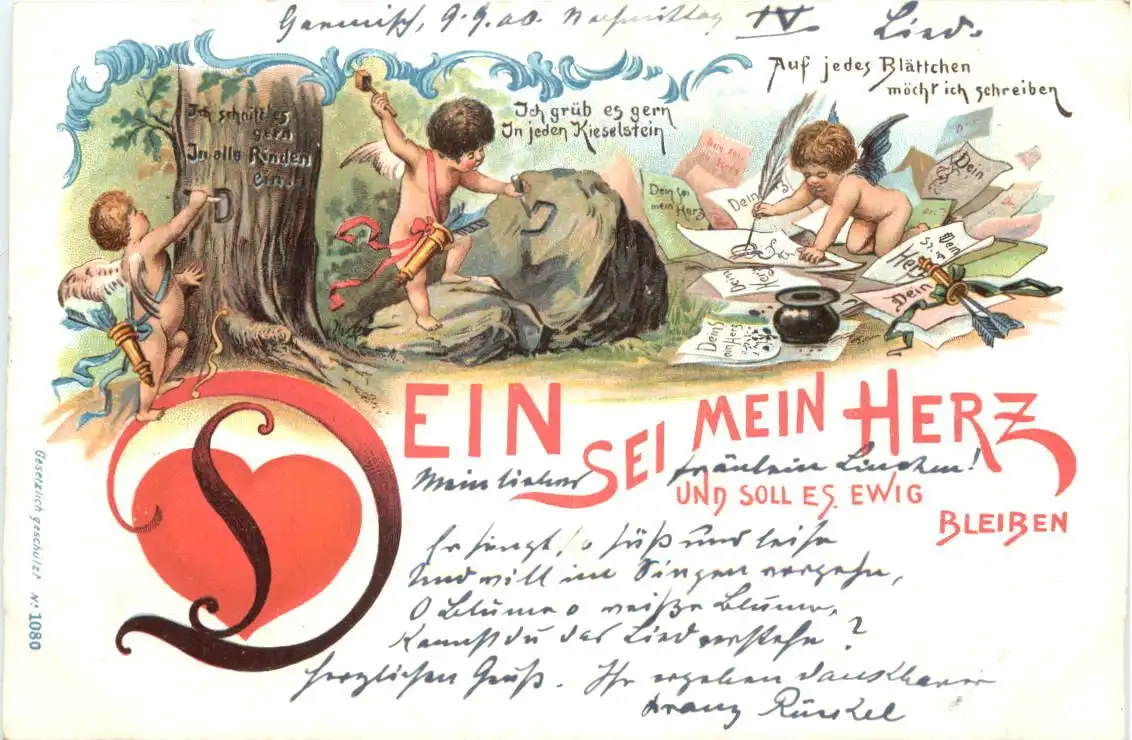 Garmisch, 9.9.00. Nachmittag IV. Lied.
Auf jedes Blättchen
möcht ich schreiben
Ich schnitt es
gern
In alle Rinden
ein.
D
Ich grüb es gern
In jeden Kieselstein
D
Dein sei
mein Herz
Dein
Dein
Dein
Herz
Dein
Dein
Dein
mein Herz
DEIN SEI MEIN HERZ
UND SOLL ES EWIG
BLEIBEN
Mein liebes Fräulein Linchen!
Er singt so süß und leise
Und will im Singen vergehn,
O Blume weiße Blume,
Kannst du das Lied verstehn?
Herzlichen Gruß. Ihr ergeben dankbarer
Franz
Gesetzlich geschützt No 1080